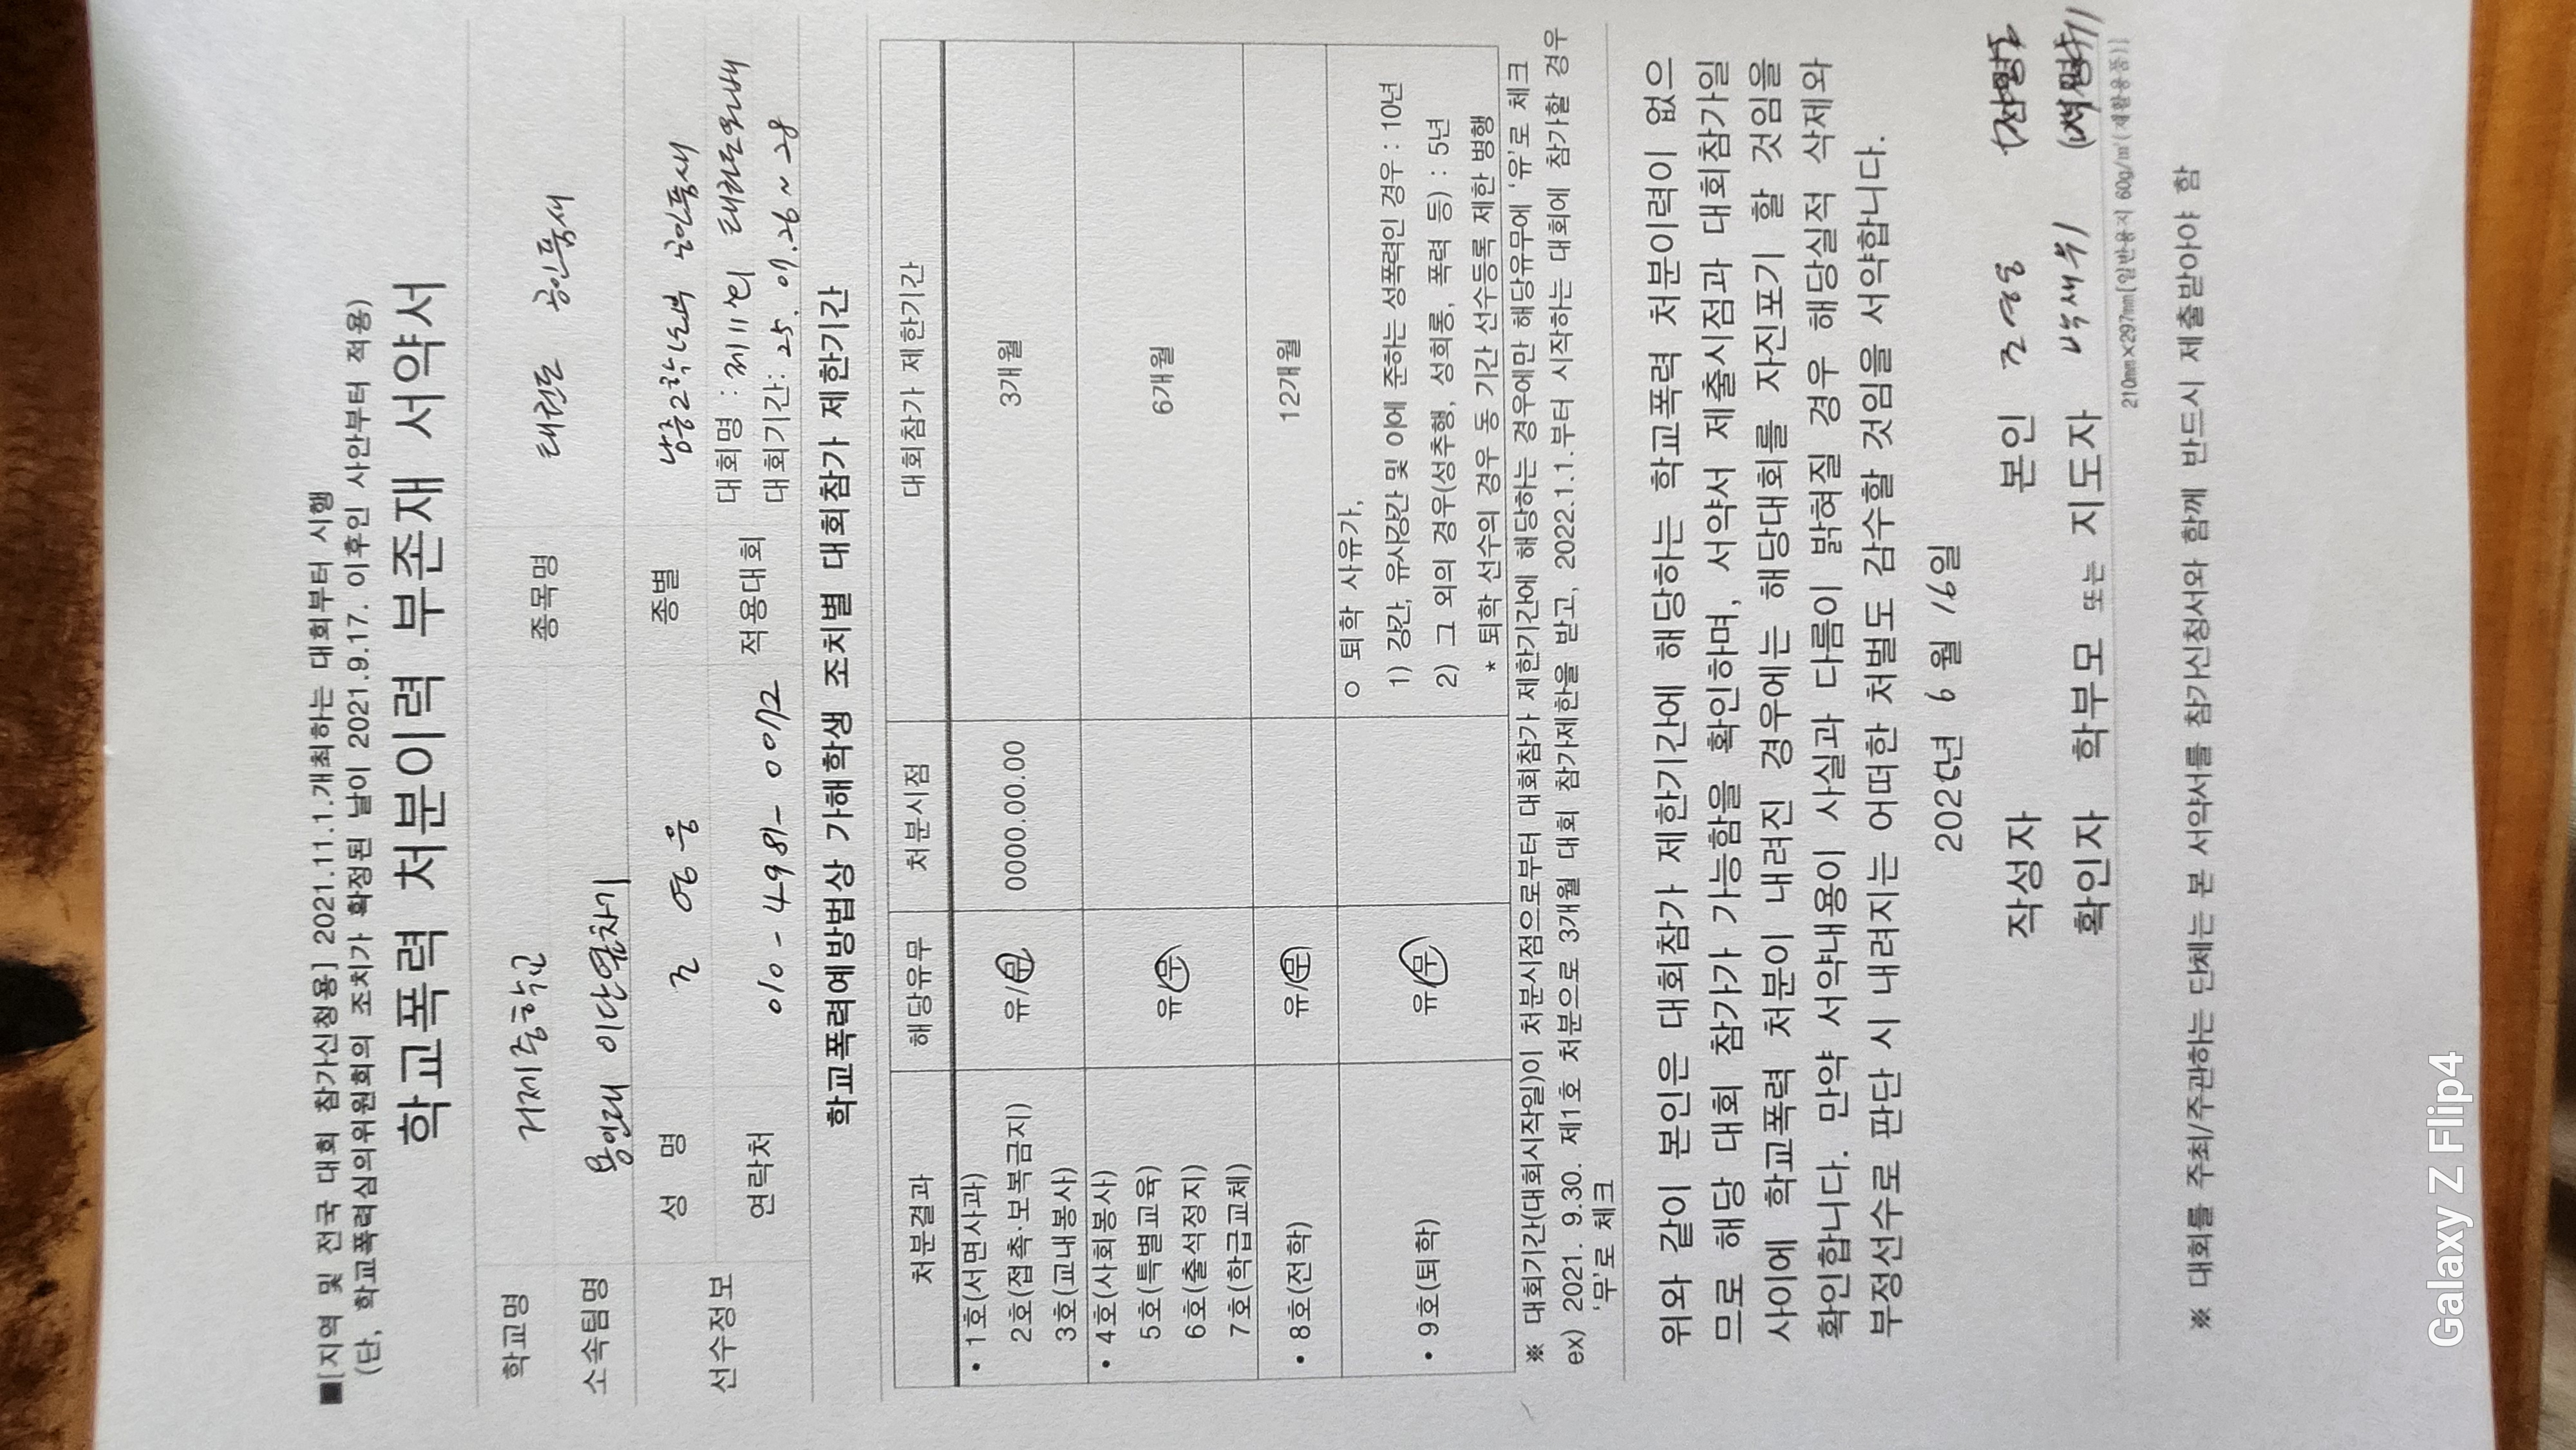 ■[지역 및 전국 대회 참가신청용] 2021.11.1.개최하는 대회부터 시행
(단, 학교폭력심의위원회의 조치가 확정된 날이 2021.9.17. 이후인 사안부터 적용)
학교폭력 처분이력 부존재 서약서
학교명 거제중학교 종목명 태권도 공인품새
소속팀명 용인대 이단옆차기
선수정보 성 명 조 영웅 종별 남중2학년부 공인품새
연락처 010-4981-0072 적용대회 대회명 : 제11회 태권도원배
대회기간: 25. 07.26 ~ 28
학교폭력예방법상 가해학생 조치별 대회참가 제한기간
처분결과 해당유무 처분시점 대회참가 제한기간
• 1호(서면사과)
2호(접촉·보복금지) 유/무 0000.00.00 3개월
3호(교내봉사)
• 4호(사회봉사)
5호(특별교육) 유/무 6개월
6호(출석정지)
7호(학급교체)
• 8호(전학) 유/무 12개월
• 9호(퇴학) 유/무
○ 퇴학 사유가,
1) 강간, 유사강간 및 이에 준하는 성폭력인 경우 : 10년
2) 그 외의 경우(성추행, 성희롱, 폭력 등) : 5년
* 퇴학 선수의 경우 동 기간 선수등록 제한 병행
※ 대회기간(대회시작일)이 처분시점으로부터 대회참가 제한기간에 해당하는 경우에만 해당유무에 '유'로 체크
ex) 2021. 9.30. 제1호 처분으로 3개월 대회 참가제한을 받고, 2022.1.1.부터 시작하는 대회에 참가할 경우
'무'로 체크
위와 같이 본인은 대회참가 제한기간에 해당하는 학교폭력 처분이력이 없으
므로 해당 대회 참가가 가능함을 확인하며, 서약서 제출시점과 대회참가일
사이에 학교폭력 처분이 내려진 경우에는 해당대회를 자진포기 할 것임을
확인합니다. 만약 서약내용이 사실과 다름이 밝혀질 경우 해당실적 삭제와
부정선수로 판단 시 내려지는 어떠한 처벌도 감수할 것임을 서약합니다.
2025년 6월 16일
작성자 본인 조영웅 (서명)
확인자 학부모 또는 지도자 (서명)
210㎜×297㎜[일반용지 60g/㎡(재활용품)]
※ 대회를 주최/주관하는 단체는 본 서약서를 참가신청서와 함께 반드시 제출받아야 함
Galaxy Z Flip4